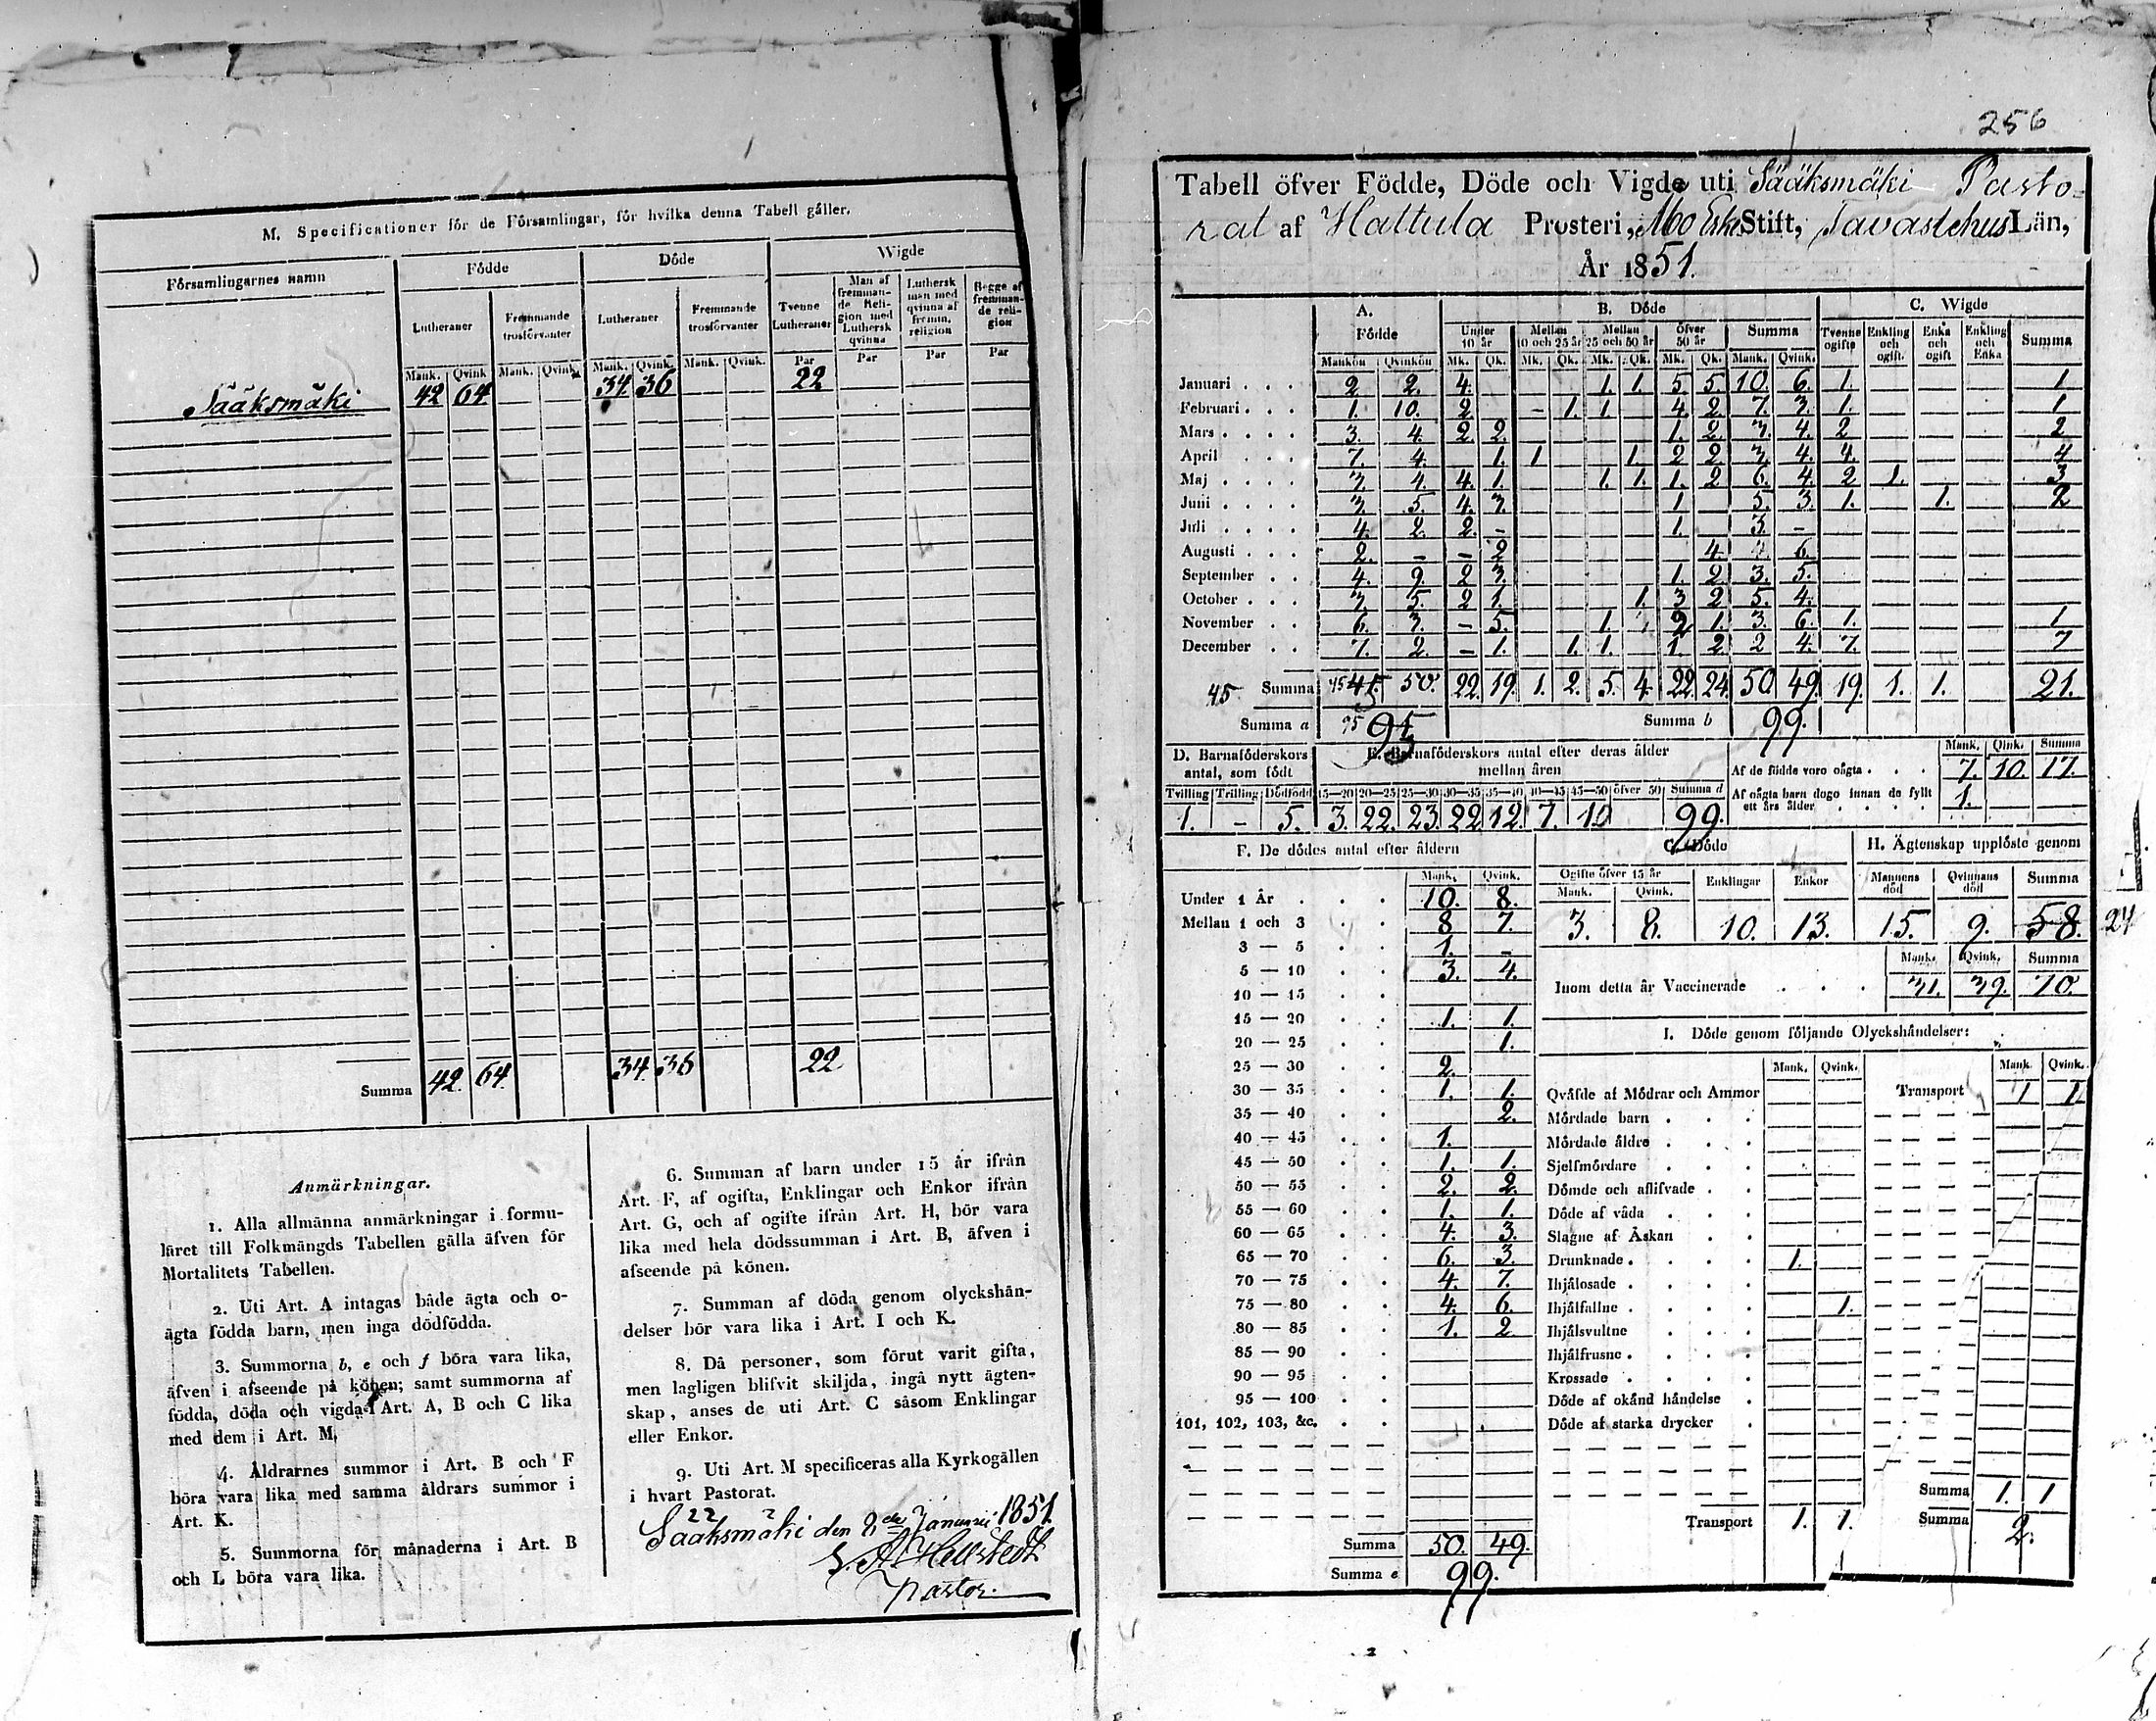 M. Specificationer för de Församlingar, för hvilka denna Tabell gäller.
Församlingarnes namn Födde Döde Wigde
Lutheraner Fremmande trosförvanter Lutheraner Fremmande trosförvanter Tvenne Lutheraner Man af fremmande Religion med Luthersk qvinna Luthersk man med qvinna af fremm. religion Begge af fremmande religion
Mank. Qvink Mank. Qvink. Mank. Qvink. Mank. Qvink. Par Par Par Par
Sääksmäki 42 64 34 36 22
Summa 42. 64 34 36 22
Anmärkningar.
1. Alla allmänna anmärkningar i formu-
läret till Folkmängds Tabellen gälla äfven för
Mortalitets Tabellen.
2. Uti Art. A intagas både ägta och o-
ägta födda barn, men inga dödfödda.
3. Summorna b, e och f böra vara lika,
äfven i afseende på könen; samt summorna af
födda, döda och vigda i Art. A, B och C lika
med dem i Art. M.
4. Åldrarnes summor i Art. B och F
böra vara lika med samma åldrars summor i
Art. K.
5. Summorna för månaderna i Art. B
och L böra vara lika.
6. Summan af barn under 15 år ifrån
Art. F, af ogifta, Enklingar och Enkor ifrån
Art. G, och af ogifte ifrån Art. H, bör vara
lika med hela dödssumman i Art. B, äfven i
afseende på könen.
7. Summan af döda genom olyckshän-
delser bör vara lika i Art. I och K.
8. Då personer, som förut varit gifta,
men lagligen blifvit skiljda, ingå nytt ägten-
skap, anses de uti Art. C såsom Enklingar
eller Enkor.
9. Uti Art. M specificeras alla Kyrkogällen
i hvart Pastorat.
Sääksmäki den Januari 1851
Hellstedt
Pastor.
256
Tabell öfver Födde, Döde och Vigde uti Sääksmäki Pasto-
rat af Hattula Prosteri, Åbo Erke Stift, Tavastehus Län,
År 1851.
A. Födde B. Döde C. Wigde
Under 10 år Mellan 10 och 25 år Mellan 25 och 50 år Öfver 50 år Summa Tvenne ogifte Enkling och ogift Enka och ogift Enkling och Enka Summa
Mankön Qvinkön Mk. Qk. Mk. Qk. Mk. Qk. Mk. Qk. Mank. Qvink.
Januari 2 2. 4. 1. 1. 5. 5. 10. 6. 1. 1
Februari 1. 10. 2 - 1. 1. 4. 2. 7. 3. 1. 1
Mars 3. 4. 2. 2. 1. 2. 3. 4. 2 2
April 7. 4. 1. 1 1. 2 2 3. 4. 4. 4
Maj 3. 4. 4. 1. 1. 1. 1. 2 6. 4. 2 1. 3
Juni 3. 5. 4. 3. 1 5. 3. 1. 1. 2
Juli 4. 2. 2. - 1. 3. -
Augusti 2. - - 2 4. 6.
September 4. 9. 2 3. 1. 2. 3. 5.
October 3. 5. 2 1. 1. 3 2 5. 4.
November 6. 3. - 5. 1. 2 1. 3. 6. 1. 1
December 7. 2. - 1. 1. 1. 1. 2. 2 4. 7. 7
45 Summa 45 45. 50. 22. 19. 1. 2. 5. 4. 22. 24. 50. 49. 19. 1. 1. 21.
Summa a 95 95 Summa b 99.
D. Barnaföderskors antal, som födt
E. Barnaföderskors antal efter deras ålder mellan åren
Tvilling Trilling Dödfödd 15—20 20—25 25—30 30—35 35—40 40—45 45—50 öfver 50 Summa d
1. - 5. 3. 22. 23. 22 12. 7. 10 99.
Mank. Qink. Summa
Af de födde voro oägta 7. 10. 17.
Af oägta barn dogo innan de fyllt ett års ålder 1.
F. De dödes antal efter åldern
Mank. Qvink.
Under 1 År 10. 8.
Mellan 1 och 3 8 7.
3 — 5 1. -
5 — 10 3. 4.
10 — 15
15 — 20 1. 1.
20 — 25 1.
25 — 30 2.
30 — 35 1. 1.
35 — 40 2.
40 — 45 1.
45 — 50 1. 1.
50 — 55 2. 2.
55 — 60 1. 1.
60 — 65 4. 3.
65 — 70 6. 3.
70 — 75 4. 7.
75 — 80 4. 6.
80 — 85 1. 2
85 — 90
90 — 95
95 — 100
101, 102, 103, &c.
Summa 50. 49.
Summa e 99.
G. Döde
Ogifte öfver 15 år Enklingar Enkor
Mank. Qvink.
3. 8. 10. 13.
H. Ägtenskap upplöste genom
Mannens död Qvinnans död Summa
15. 9. 58. 24
Mank. Qvink. Summa
Inom detta år Vaccinerade 31. 39. 70.
I. Döde genom följande Olyckshändelser:
Mank. Qvink. Mank. Qvink.
Qväfde af Mödrar och Ammor Transport 1 1
Mördade barn
Mördade äldre
Sjelfmördare
Dömde och aflifvade
Döde af våda
Slagne af Åskan
Drunknade 1.
Ihjälosade
Ihjälfallne 1.
Ihjälsvultne
Ihjälfrusne
Krossade
Döde af okänd händelse
Döde af starka drycker
Summa 1. 1
Transport 1. 1. Summa 2.